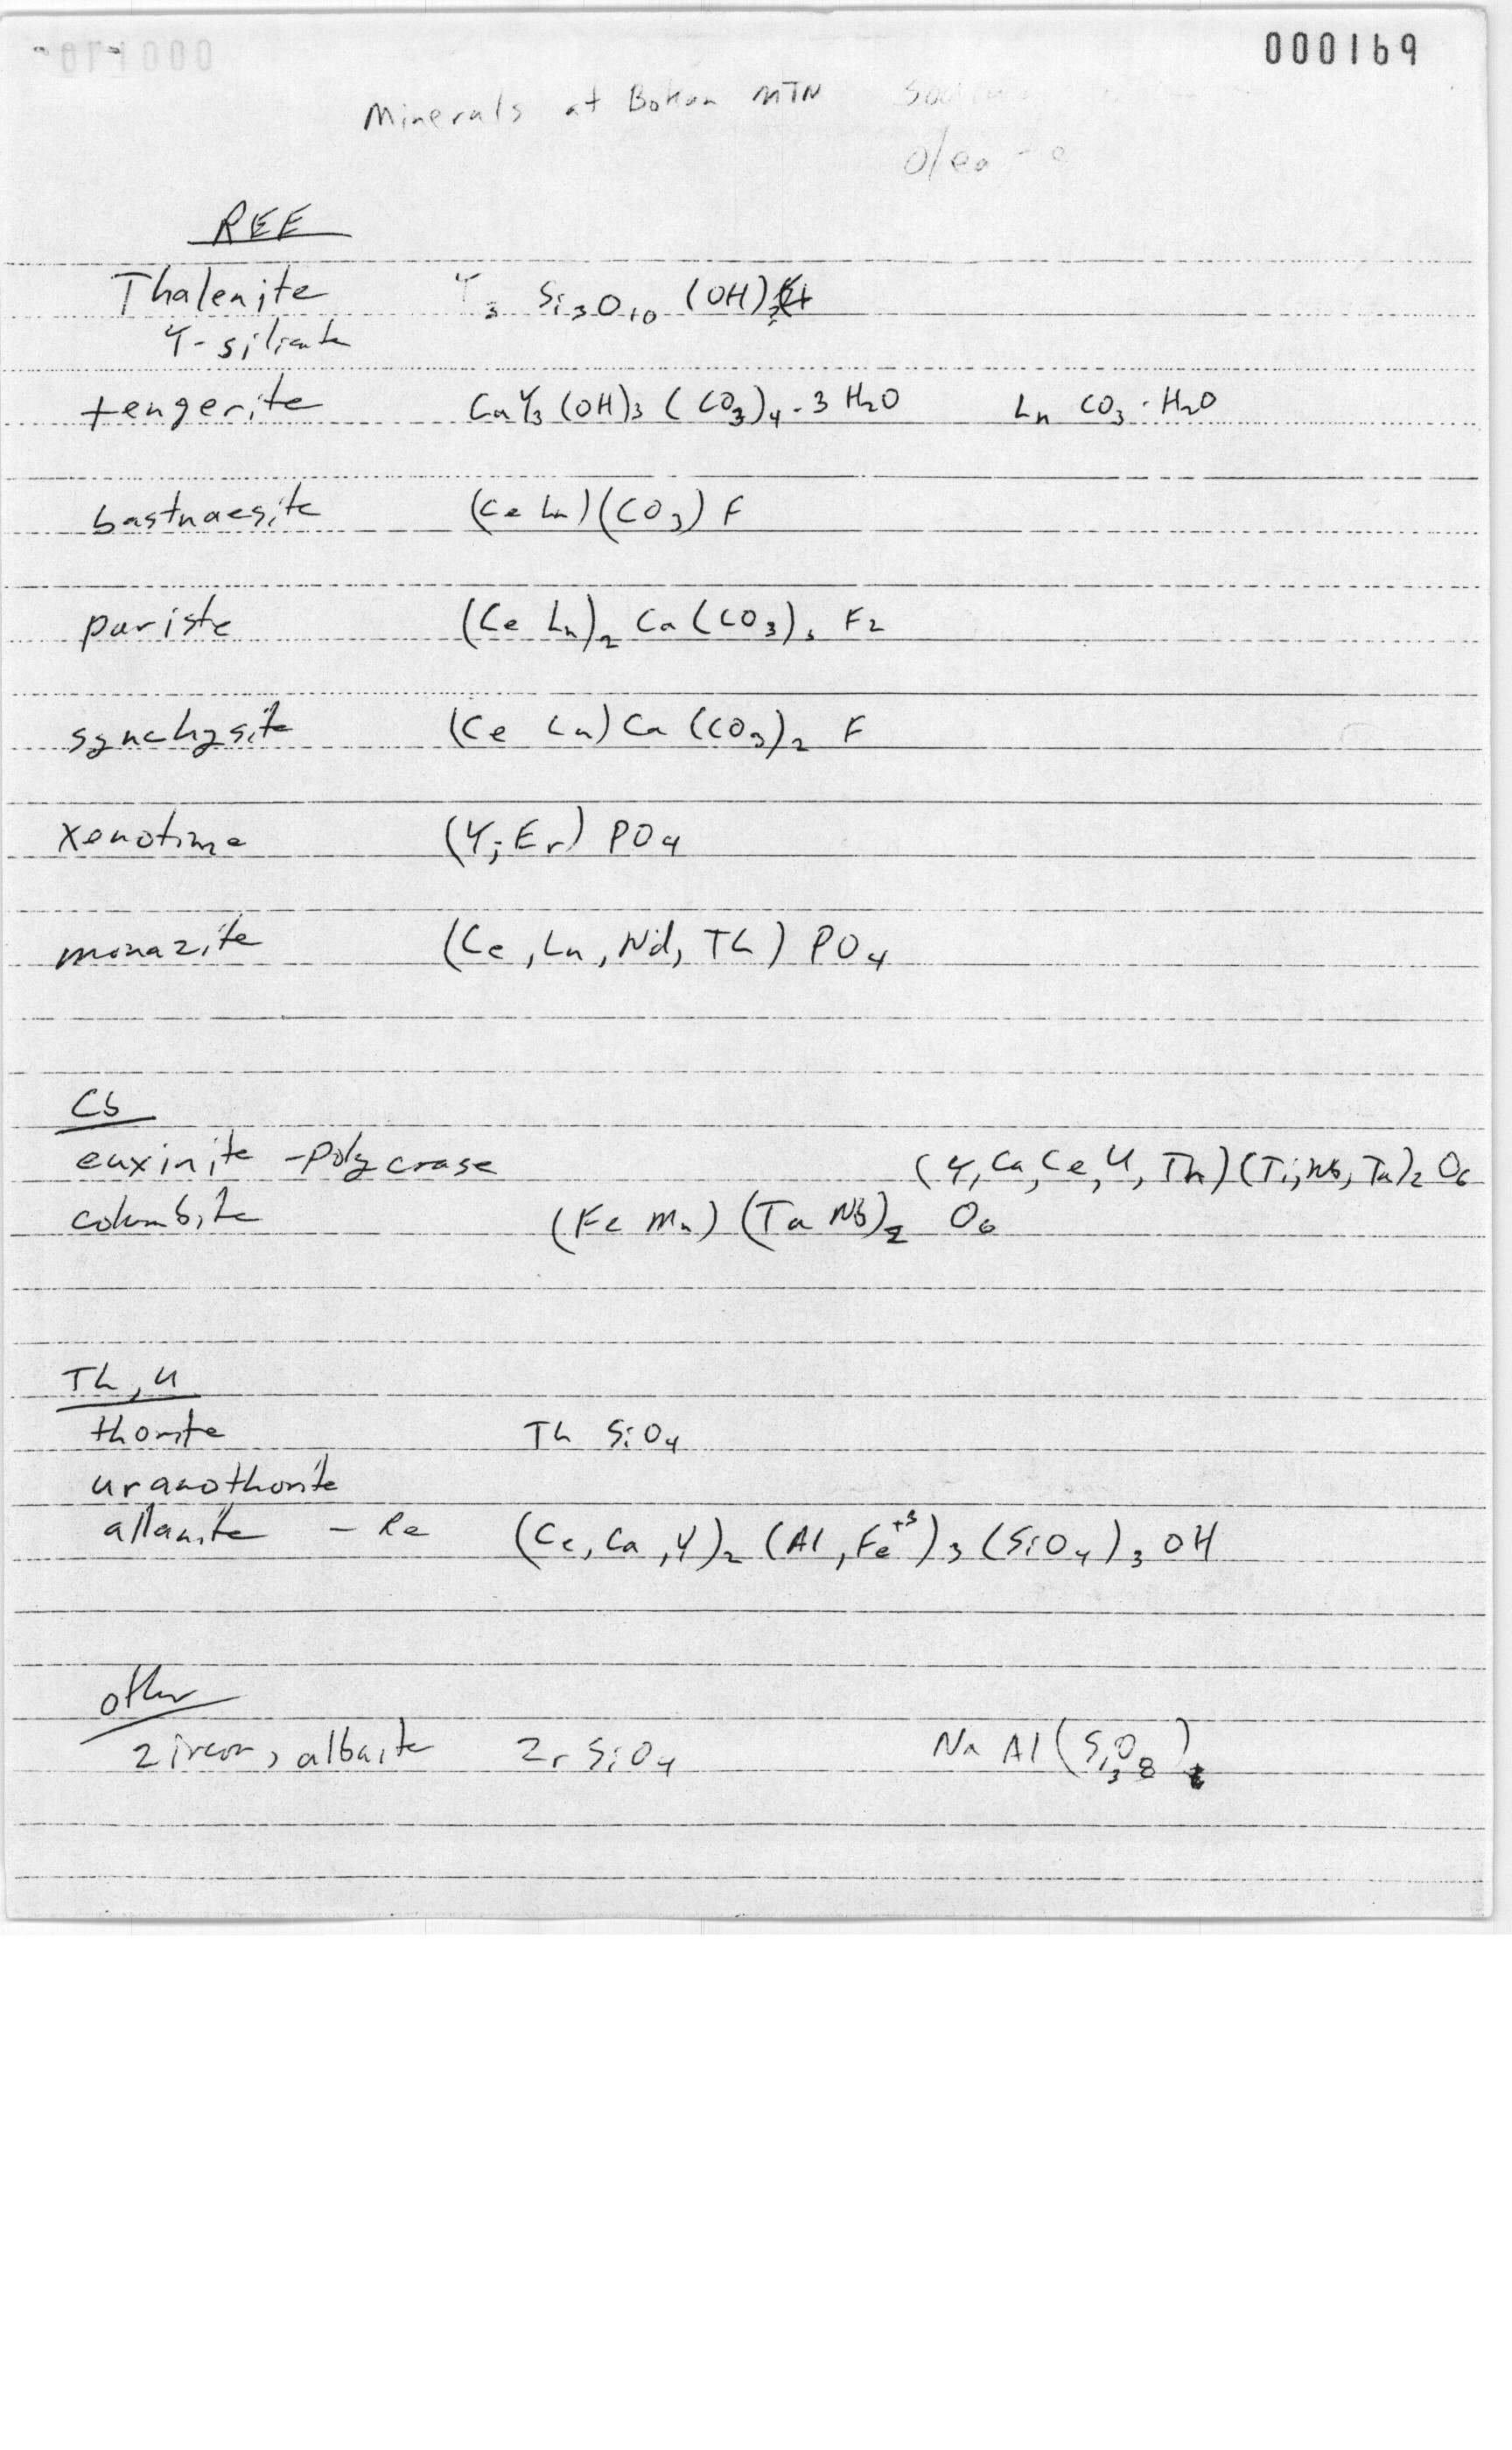 000169
Minerals at Bokan MTN
REE
Thalenite Y3 Si3O10 (OH)
Y-silicate
tengerite CaY3 (OH)3 (CO3)4 · 3 H2O Ln CO3 · H2O
bastnaesite (Ce Ln)(CO3) F
pariste (Ce Ln)2 Ca (CO3)3 F2
synchysite (Ce La) Ca (CO3)2 F
xenotime (Y, Er) PO4
monazite (Ce, La, Nd, Th) PO4
Cb
euxinite - polycrase (Y, Ca, Ce, U, Th)(Ti, Nb, Ta)2 O6
columbite (Fe Mn) (Ta Nb)2 O6
Th, U
thorite Th SiO4
uranothorite
allanite - Re (Ce, Ca, Y)2 (Al, Fe+3)3 (SiO4)3 OH
other
zircon, albaite Zr SiO4 Na Al (Si3O8)